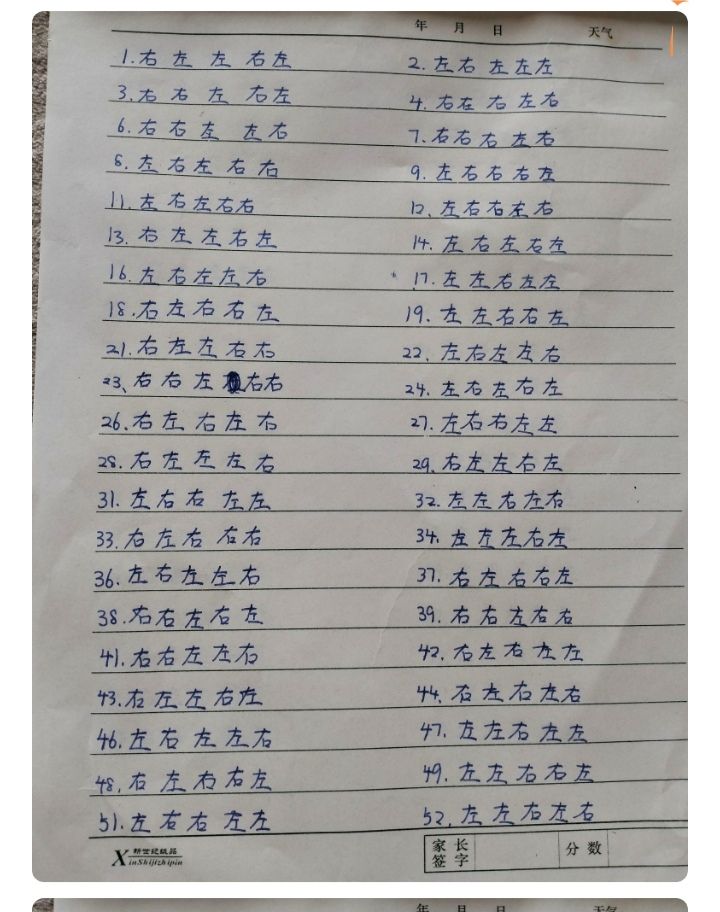 年 月 日 天气
1.右 左 左 右左 2.左右 左左左
3.右 右 左 右左 4.右左 右 左右
6.右 右左 左 右 7.右右 右 左右
8.左 右左 右 右 9.左 右 右 右 左
11.左 右左右右 12、左右右左右
13.右 左 左右 左 14.左 右 左 右左
16.左 右左左 右 17.左 左右左左
18.右左 右 右 左 19.左 左右右左
21.右 左左 右 右 22、左右左 左 右
23、右 右 左 右右 24.左右左右左
26.右左 右左 右 27.左右右左左
28.右 左 左 左 右 29、右左左右左
31.左 右右 左左 32.左左右左右
33.右左右 右右 34.左 左左右左
36.左右左左右 37.右左右右左
38.右右左右 左 39.右 右左右右
41.右右左左右 42、右左右左左
43.右左左右左 44、右左右左右
46.左右 左左右 47、左左右左左
48、右 左右右左 49、左左右右左
51.左 右右 左左 52、左 左右左右
新世纪纸品
XinShijizhipin
家长签字 分数
年 月 日 天气